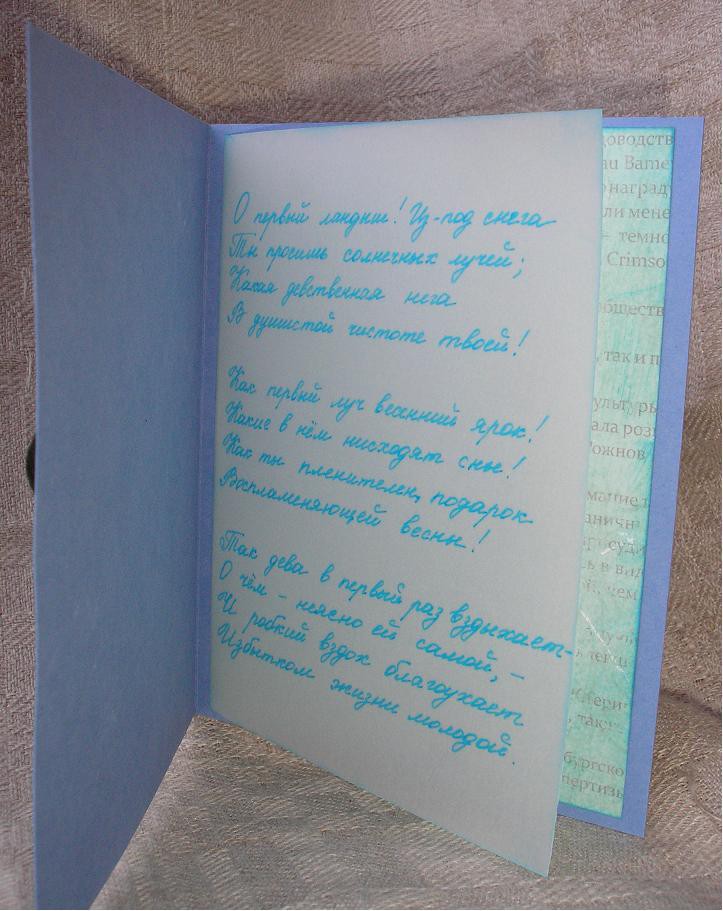 О первый ландыш! Из-под снега
Ты просишь солнечных лучей;
Какая девственная нега
В душистой чистоте твоей!
Как первый луч весенний ярок!
Какие в нём нисходят сны!
Как ты пленителен, подарок
Воспламеняющей весны!
Так дева в первый раз вздыхает–
О чём – неясно ей самой, –
И робкий вздох благоухает
Избытком жизни молодой.
оводств
au Bame
наград
ли мене
– темно
Crimso
обществ
, так и п
ультуры
ала роз
Рожнов
мание
аничн
суд
сь в вид
чем
таку
бургско
пертизь